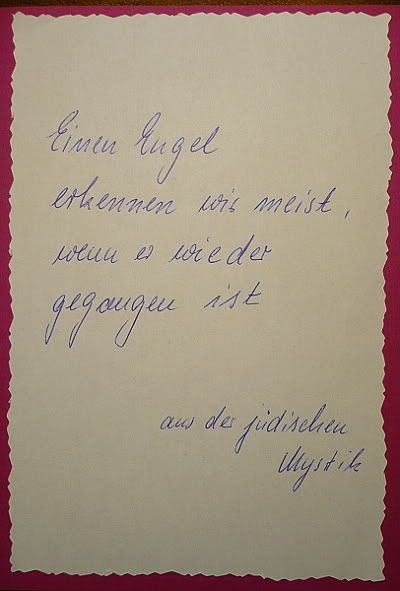 Einen Engel
erkennen wir meist,
wenn er wieder
gegangen ist
aus der jüdischen
Mystik